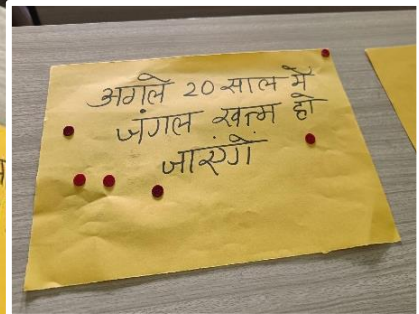 अगले 20 साल में
जंगल खत्म हो
जाएंगे